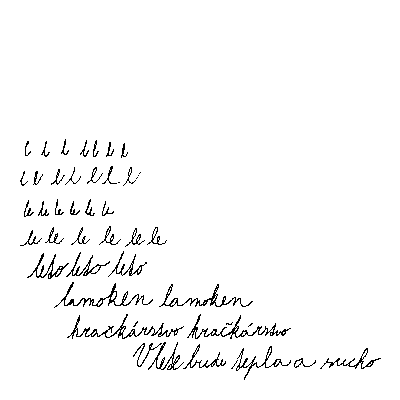 l l l l l l l
l l l l l l l
le le le le le le
le le le le le le le
leto leto leto
lamoken lamoken
hračkárstvo hračkárstvo
V lete bude tepla a sucho